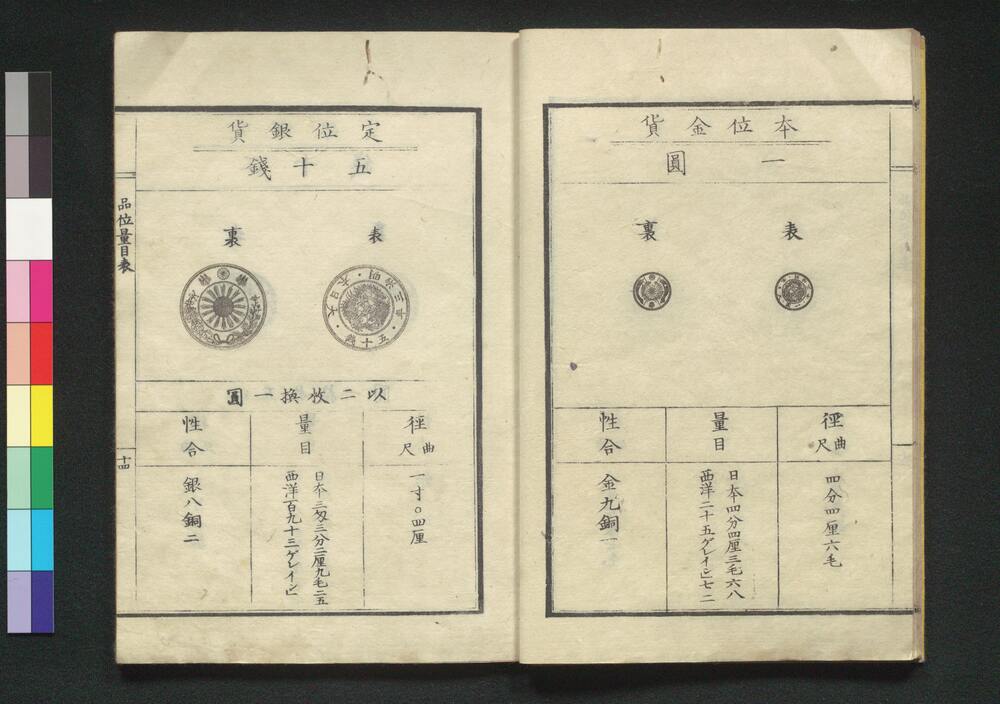 本位金貨
一圓
表
裏
徑
曲尺
四分四厘六毛
量目
日本四分四厘三毛六八
西洋二十五「ゲレイン」七二
性合
金九銅一
定位銀貨
五十錢
表
裏
以二枚換一圓
徑
曲尺
一寸〇四厘
量目
日本三匁三分二厘九毛二五
西洋百九十三「ゲレイン」
性合
銀八銅二
品位量目表
十四